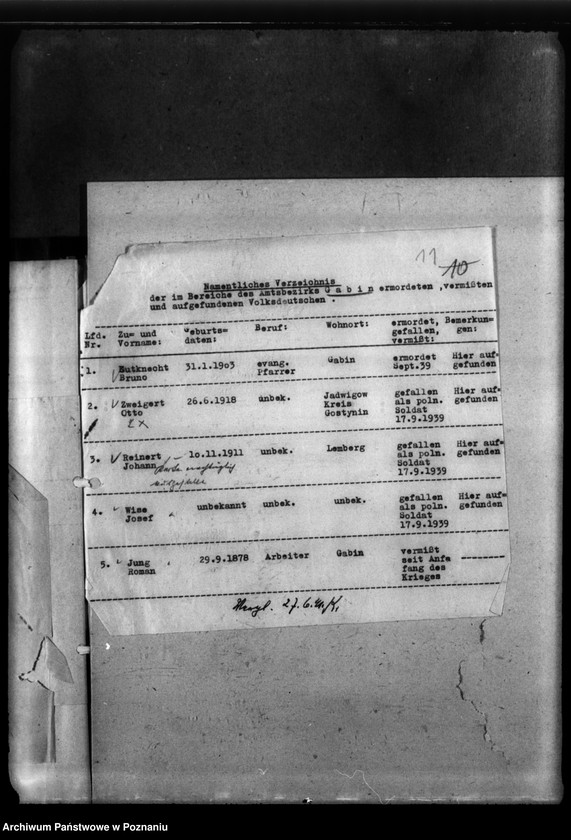 11 10
Namentliches Verzeichnis
der im Bereiche des Amtsbezirks G a b i n ermordeten ,vermißten
und aufgefundenen Volksdeutschen .
Lfd. Zu= und Geburts= Beruf: Wohnort: ermordet, Bemerkun=
Nr. Vorname: daten: gefallen, gen:
vermißt:
1. Gutknecht 31.1.19o3 evang. Gabin ermordet Hier auf=
Bruno Pfarrer Sept.39 gefunden
2. Zweigert 26.6.1918 unbek. Jadwigow gefallen Hier auf=
Otto Kreis als poln. gefunden
EX Gostynin Soldat
17.9.1939
3. Reinert 1o.11.1911 unbek. Lemberg gefallen Hier auf=
Johann als poln. gefunden
Soldat
17.9.1939
4. Wise unbekannt unbek. unbek. gefallen Hier auf=
Josef als poln. gefunden
Soldat
17.9.1939
5. Jung 29.9.1878 Arbeiter Gabin vermißt
Roman seit Anfa
fang des
Krieges
27.6.
Archiwum Państwowe w Poznaniu